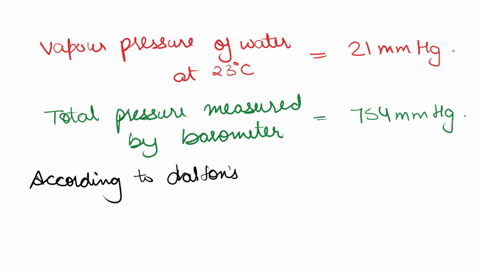 Vapour pressure of water = 21 mm Hg.
at 23°C
Total pressure measured = 754 mm Hg.
by barometer
According to dalton's